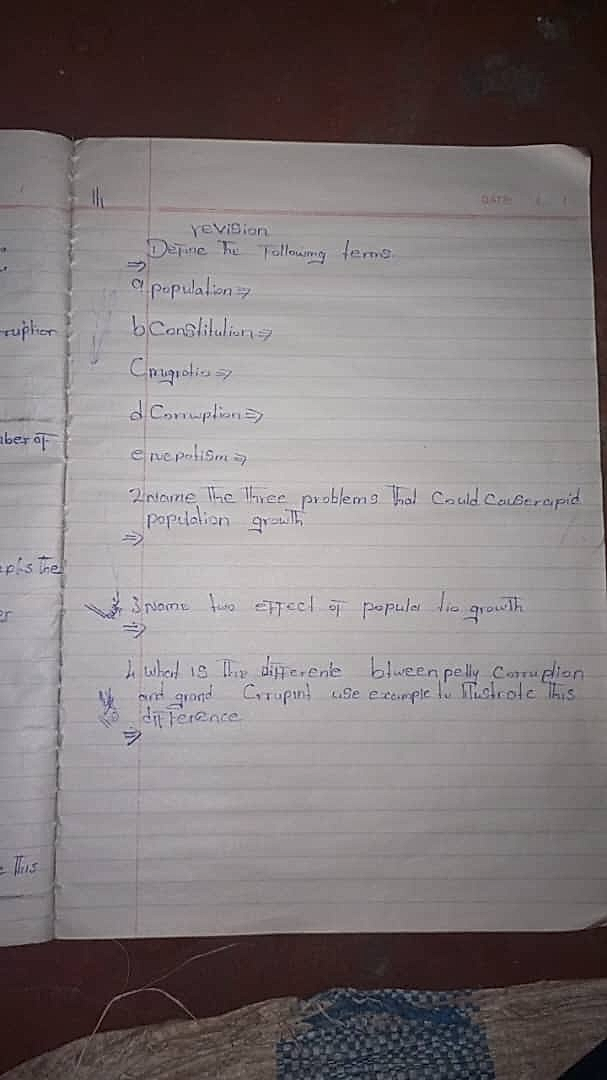 DATE: / /
revision
Define The Following terms.
⇒
a population ⇒
b Constitution ⇒
ruption
C migratio ⇒
d Corruption ⇒
mber of
e nepotism ⇒
2 Name The three problems That Could Cause rapid
population growth
⇒
the
er
3 Name two effect of popula tio growth
⇒
4 what is The differente btween pelly Corruption
and grand Crrupint use example to Illustrate This
difference
⇒
This